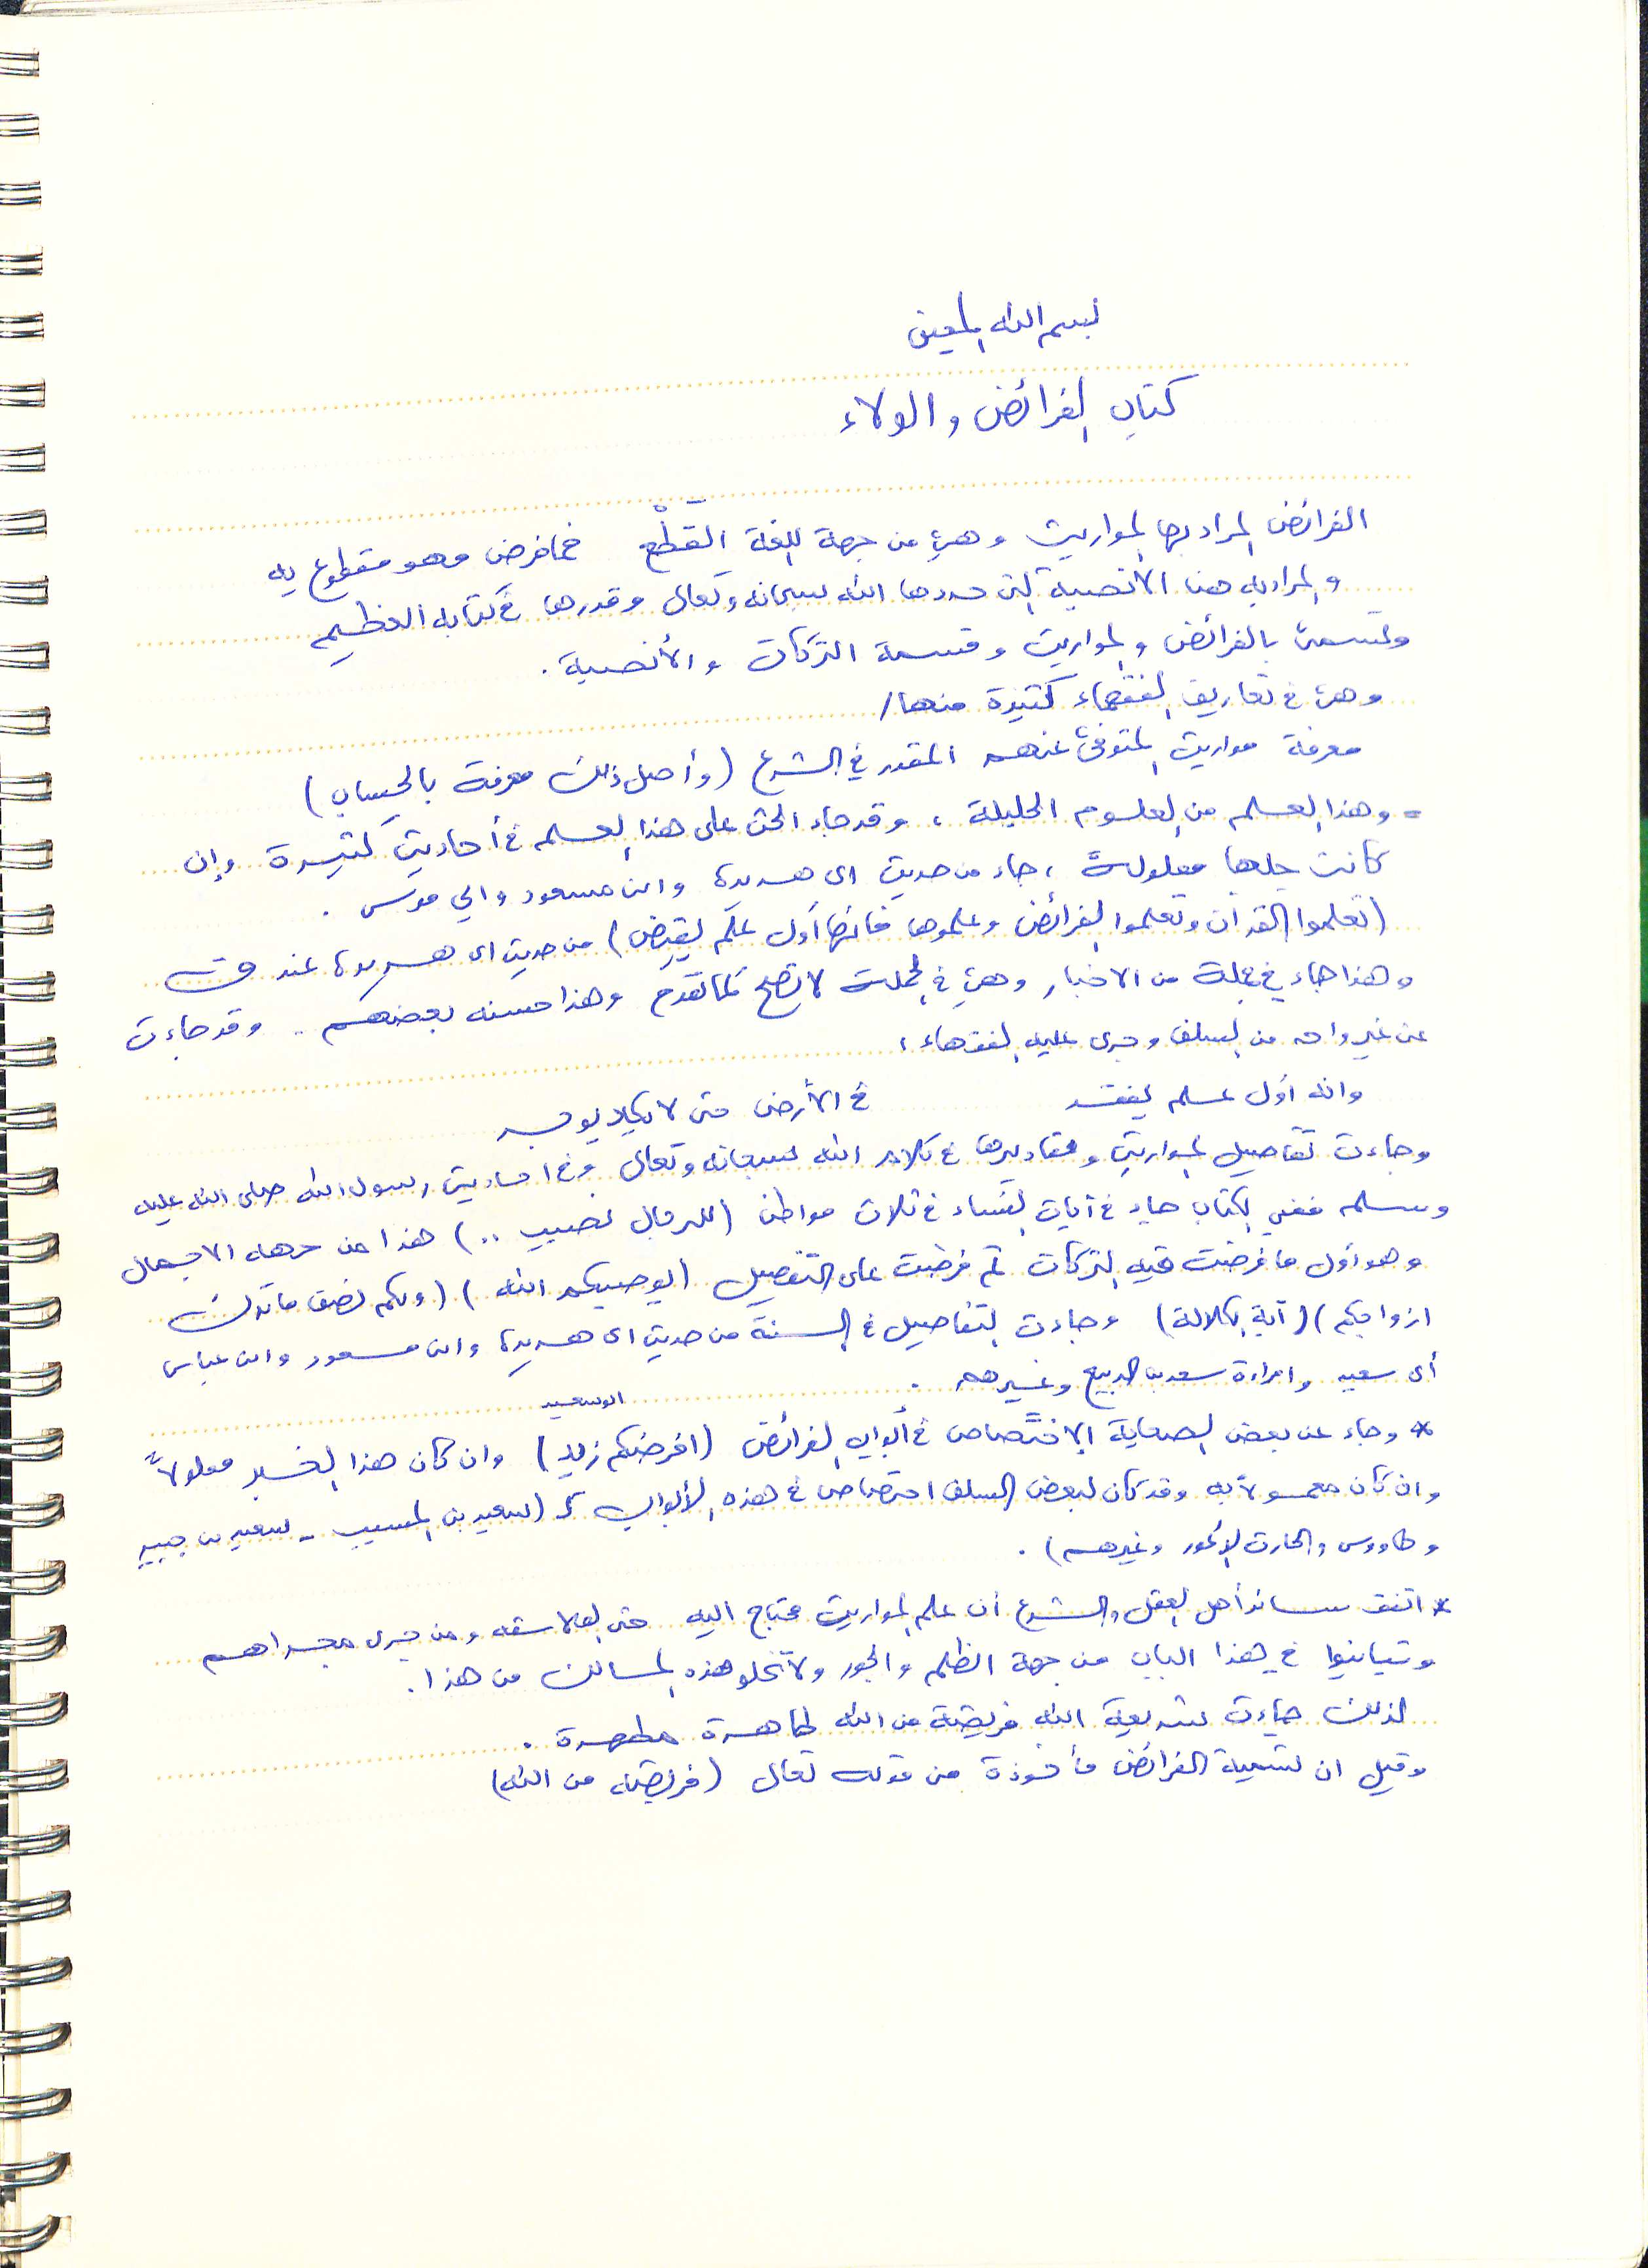 بسم الله المعين
كتاب الفرائض والولاء
الفرائض المراد بها المواريث وهي من جهة اللغة القَطْع فما فرض وهو مقطوع به
والمراد به هنا الأنصبة التي حددها الله سبحانه وتعالى وقدرها في كتابه العظيم
وتسمى بالفرائض والمواريث وقسمة التركات والأنصبة .
وهي في تعاريف الفقهاء كثيرة منها /
معرفة مواريث المتوفى عنهم المقدر في الشرع (وأصل ذلك معرفة بالحساب)
= وهذا العلم من العلوم الجليلة ، وقد جاء الحث على هذا العلم في أحاديث كثيرة وإن
كانت جلها معلولة ، جاء من حديث ابي هريرة وابن مسعود وابي موسى .
(تعلموا القرآن وتعلموا الفرائض وعلموها فانها أول علم يقبض) من حديث ابي هريرة عند
وهذا جاء في جملة من الاخبار وهي في الجملة لا تصح كما تقدم وهذا حسنه بعضهم .. وقد جاءت
عن غير واحد من السلف وجرى عليه الفقهاء ،
وانه أول علم يفقد في الأرض حتى لا يكاد يوجد
وجاءت تفاصيل المواريث ومقاديرها في كلام الله سبحانه وتعالى وفي احاديث رسول الله صلى الله عليه
وسلم ففي الكتاب جاء في آيات النساء في ثلاث مواطن (للرجال نصيب ..) هذا من جهة الاجمال
وهو أول ما فرضت فيه التركات ثم فرضت على التفصيل (يوصيكم الله) (ولكم نصف ما ترك
ازواجكم) (آية الكلالة) وجاءت التفاصيل في السنة من حديث ابي هريرة وابن مسعود وابن عباس
أبي سعيد وامرأة سعد بن الربيع وغيرهم .
ابو سعيد
* وجاء عن بعض الصحابة الاختصاص في أبواب الفرائض (افرضكم زيد) وان كان هذا الخبر معلولاً
وان كان معمولا به وقد كان لبعض السلف اختصاص في هذه الأبواب كـ (سعيد بن المسيب - سعيد بن جبير
وطاووس والحارث الأعور وغيرهم) .
* اتفق سائر أهل العقل والشرع أن علم المواريث محتاج اليه حتى الفلاسفه ومن جرى مجراهم
وتباينوا في هذا الباب من جهة الظلم والجور ولا تخلو هذه المسالك من هذا .
لذلك جاءت شريعة الله فريضة من الله طاهرة مطهرة .
وقيل ان تسمية الفرائض مأخوذة من قوله تعالى (فريضة من الله)